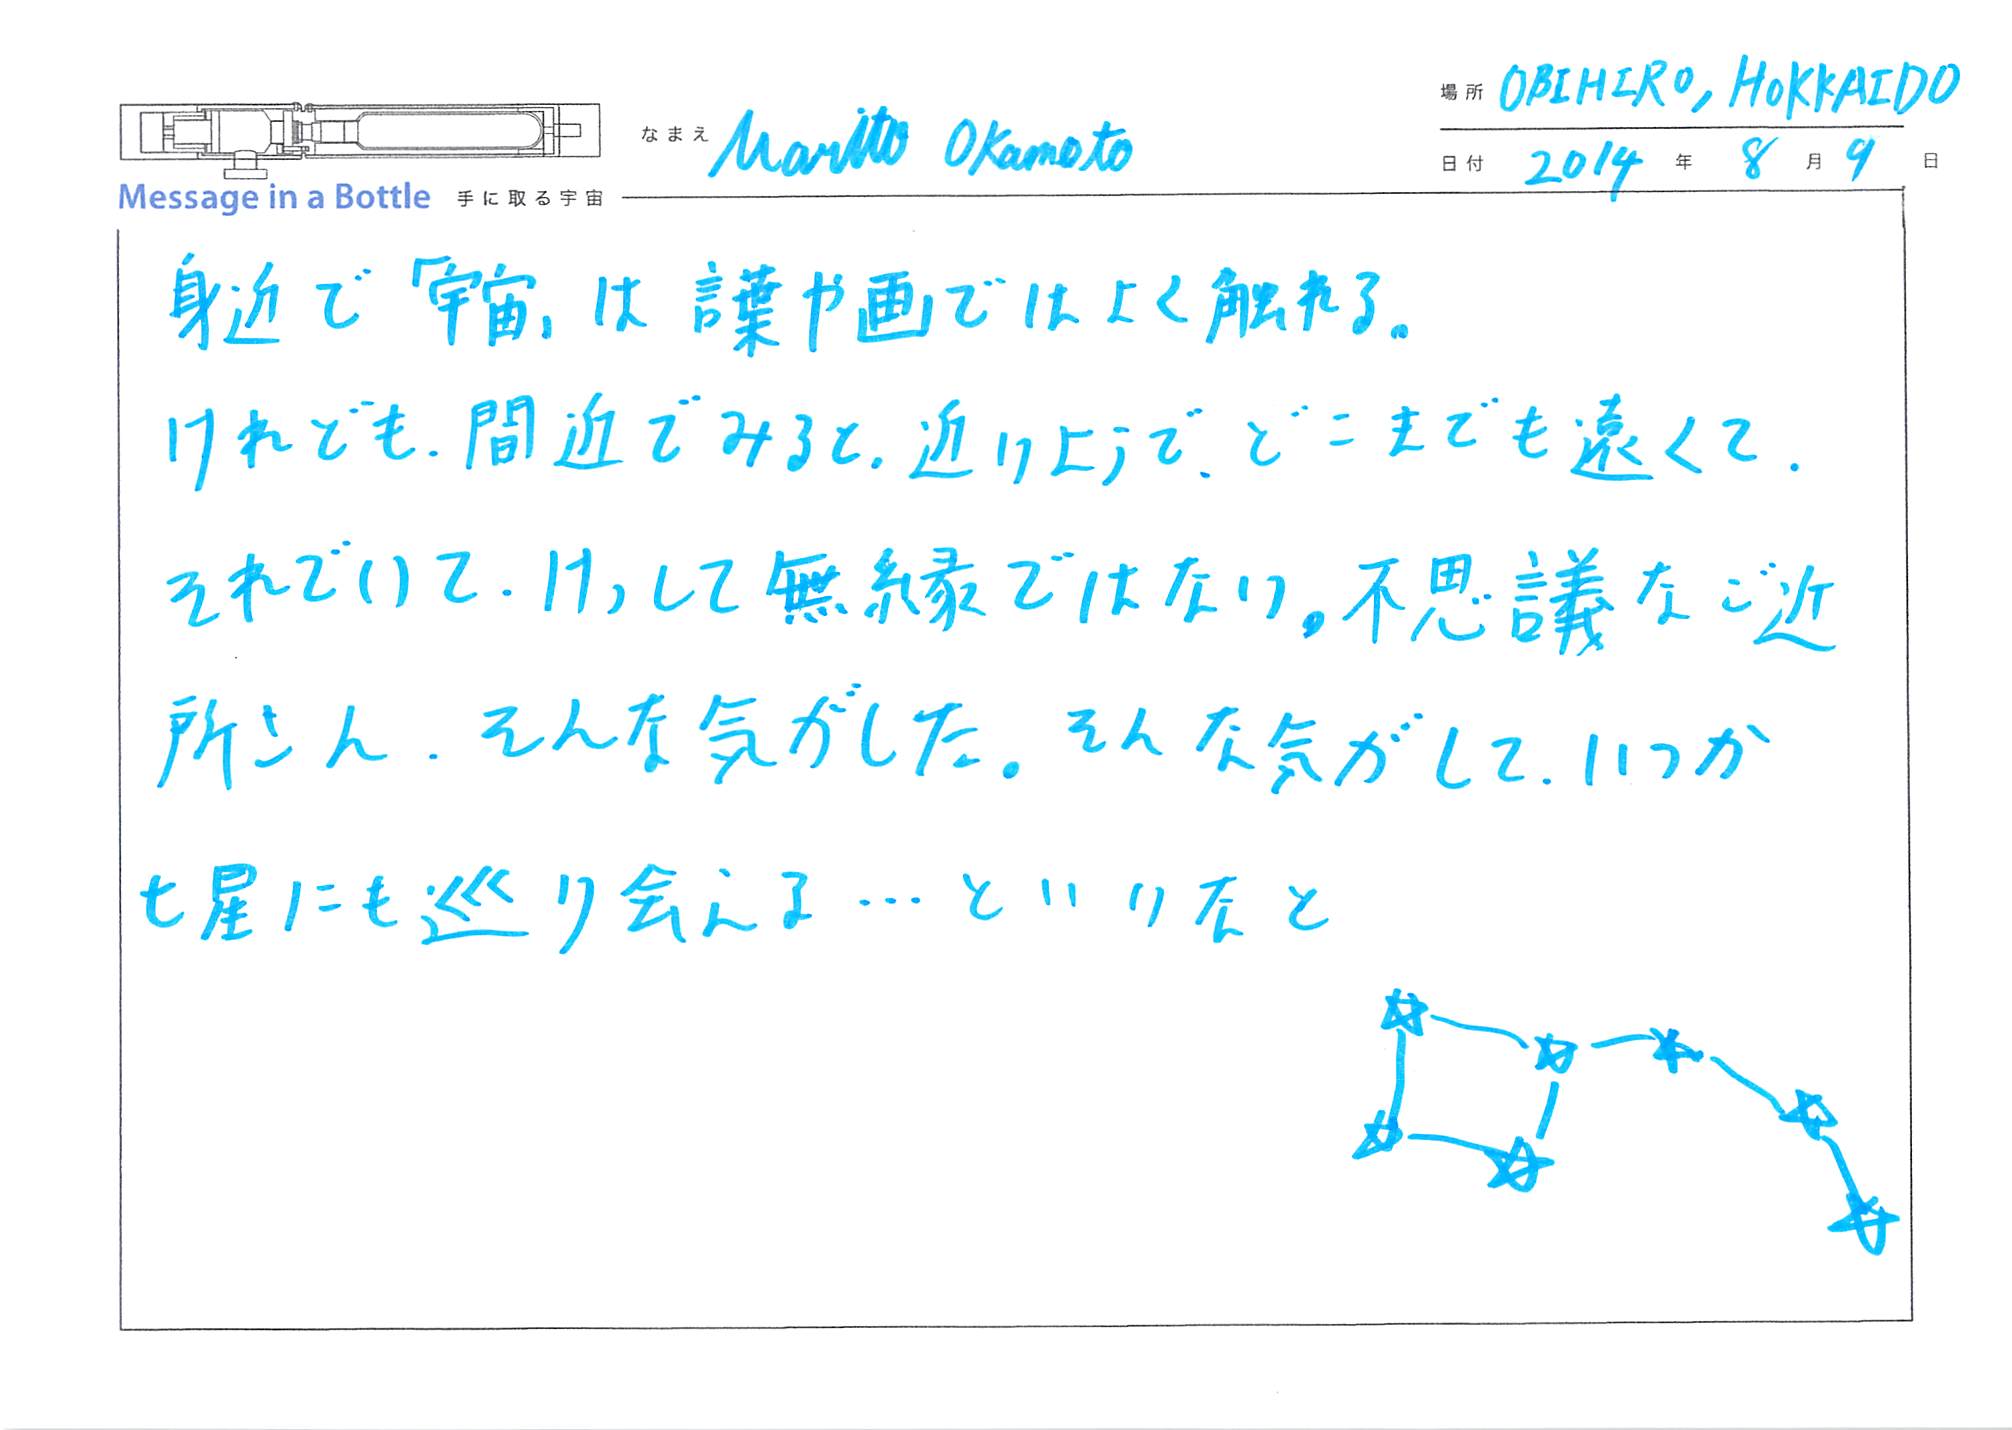 場所 OBIHIRO, HOKKAIDO
なまえ Marito Okamoto
日付 2014 年 8 月 9 日
Message in a Bottle 手に取る宇宙
身近で「宇宙」は言葉や画ではよく触れる。
けれども、間近でみると、近いようで、どこまでも遠くて、
それでいて、けっして無縁ではない。不思議なご近
所さん、そんな気がした。そんな気がして、いつか
七星にも巡り会える…といいなと